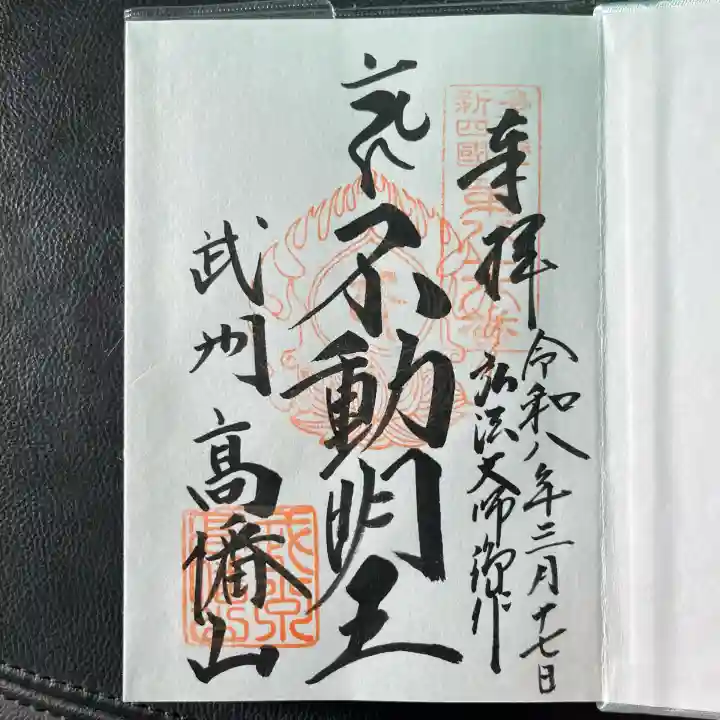 奉拝
令和八年三月十七日
弘法大師御作
不動明王
武州 高幡山
新四國